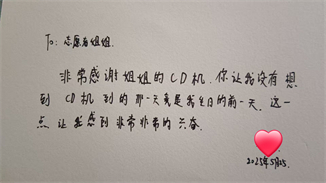 To: 志愿者姐姐.
非常感谢姐姐的CD机. 你让我没有想
到CD机到的那一天竟是我生日的前一天. 这一
点让我感到非常非常的兴奋.
2025年5月25.